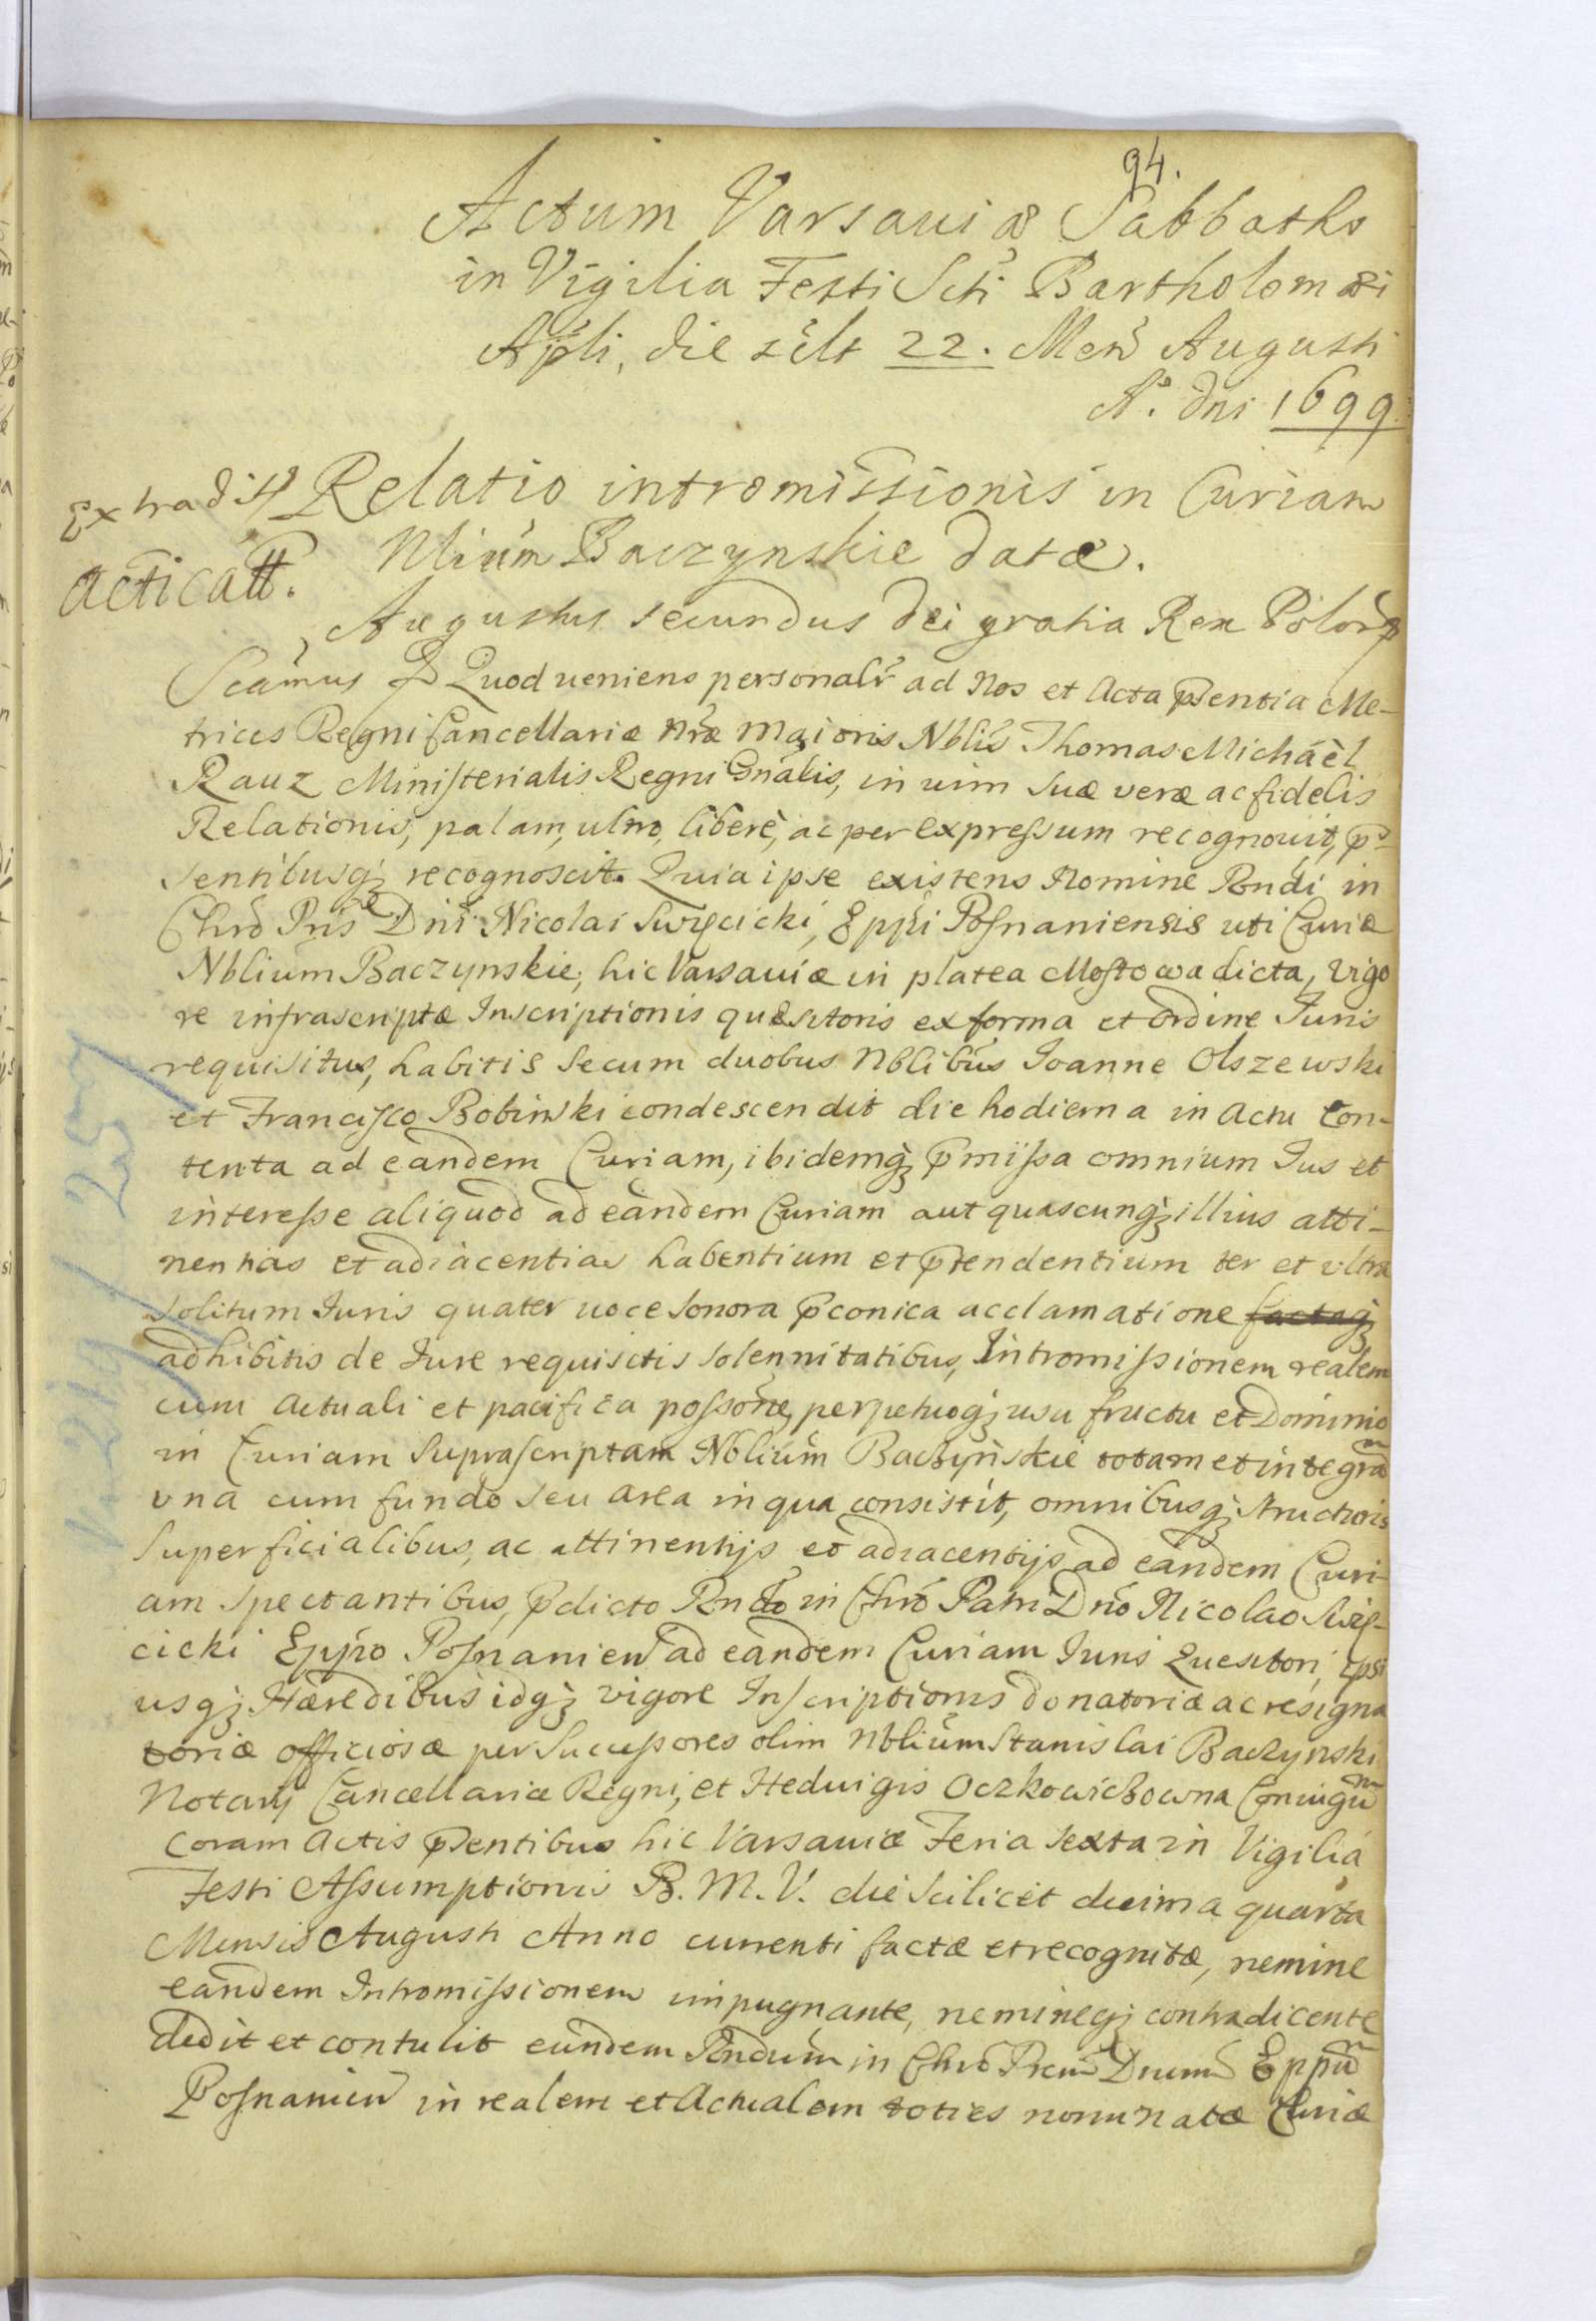 94.
Actum Varsauiæ Sabbatho
in Vigilia Festi Scti Bartholomæi
Apli, die sclt 22. Men Augusti
Aº. dni 1699
Extradit Relatio intromissionis in Curiam
Nlium Baczynskie datæ.
acticatt.
Augustus secundus Dei gratia Rex Polor
Scamus Quod ueniens personalr ad Nos et Acta psentia Me-
trices Regni Cancellariæ nræ Maioris Nblis Thomas Michaèl
Rauz Ministerialis Regni Gnalis, in uim suæ veræ ac fidelis
Relationis, palam, ultro, liberè, ac per expressum recognouit, p-
sentibusq; recognoscit. Quia ipse existens Nomine Rndi in
Chro Pris Dni Nicolai Swięcicki, Eppi Posnaniensis uti Curiæ
Nblium Baczynskie, hic Varsauiæ in platea Mostowa dicta, Vigo
re infrascriptæ Inscriptionis quæsitoris ex forma et ordine Iuris
requisitus, habitis secum duobus Nblibus Ioanne Olszewski
et Francisco Bobinski condescendit die hodierna in Actu Con-
tenta ad eandem Curiam, ibidemq; pmissa omnium Ius et
interesse aliquod ad eandem Curiam aut quascunq; illius atti-
nentias et adiacentias habentium et ptendentium ter et ultra
solitum Iuris quater uoce sonora pconica acclamatione factaq;
adhibitis de Iure requisitis solennitatibus, Intromissionem realem
cum actuali et pacifica possone, perpetuoq; usu fructu et Dominio
in Curiam Suprascriptam Nblium Baczynskie totam et integra
vna cum fundo seu area in qua consistit, omnibusq; structuris
Superficialibus, ac attinentijs et adiacentijs ad eandem Curi-
am spectantibus, pdicto Rndo in Chro Patri Dno Nicolao Swię-
cicki Eppo Posnanien ad eandem Curiam Iuris Quesitori, ipsi
usq; Hæredibus idq; vigore Inscriptionis donatoriæ ac resigna
toriæ officiosæ per Sucessores olim Nblium Stanislai Baczynski
Notarij Cancellariæ Regni, et Heduigis Oczkowiczowna Coniugu
Coram Actis psentibus hic Varsauiæ Feria sexta in Vigilia
Festi Assumptionis B. M. V. die scilicet decima quarta
Mensis Augusti Anno currenti factæ et recognitæ, nemine
eandem Intromissionem impugnante, nemineq; contradicente
dedit et contulit eundem Rndum in Chro Prem Dnum Eppu
Posnanien in realem et Actualem toties nominatæ Curiæ